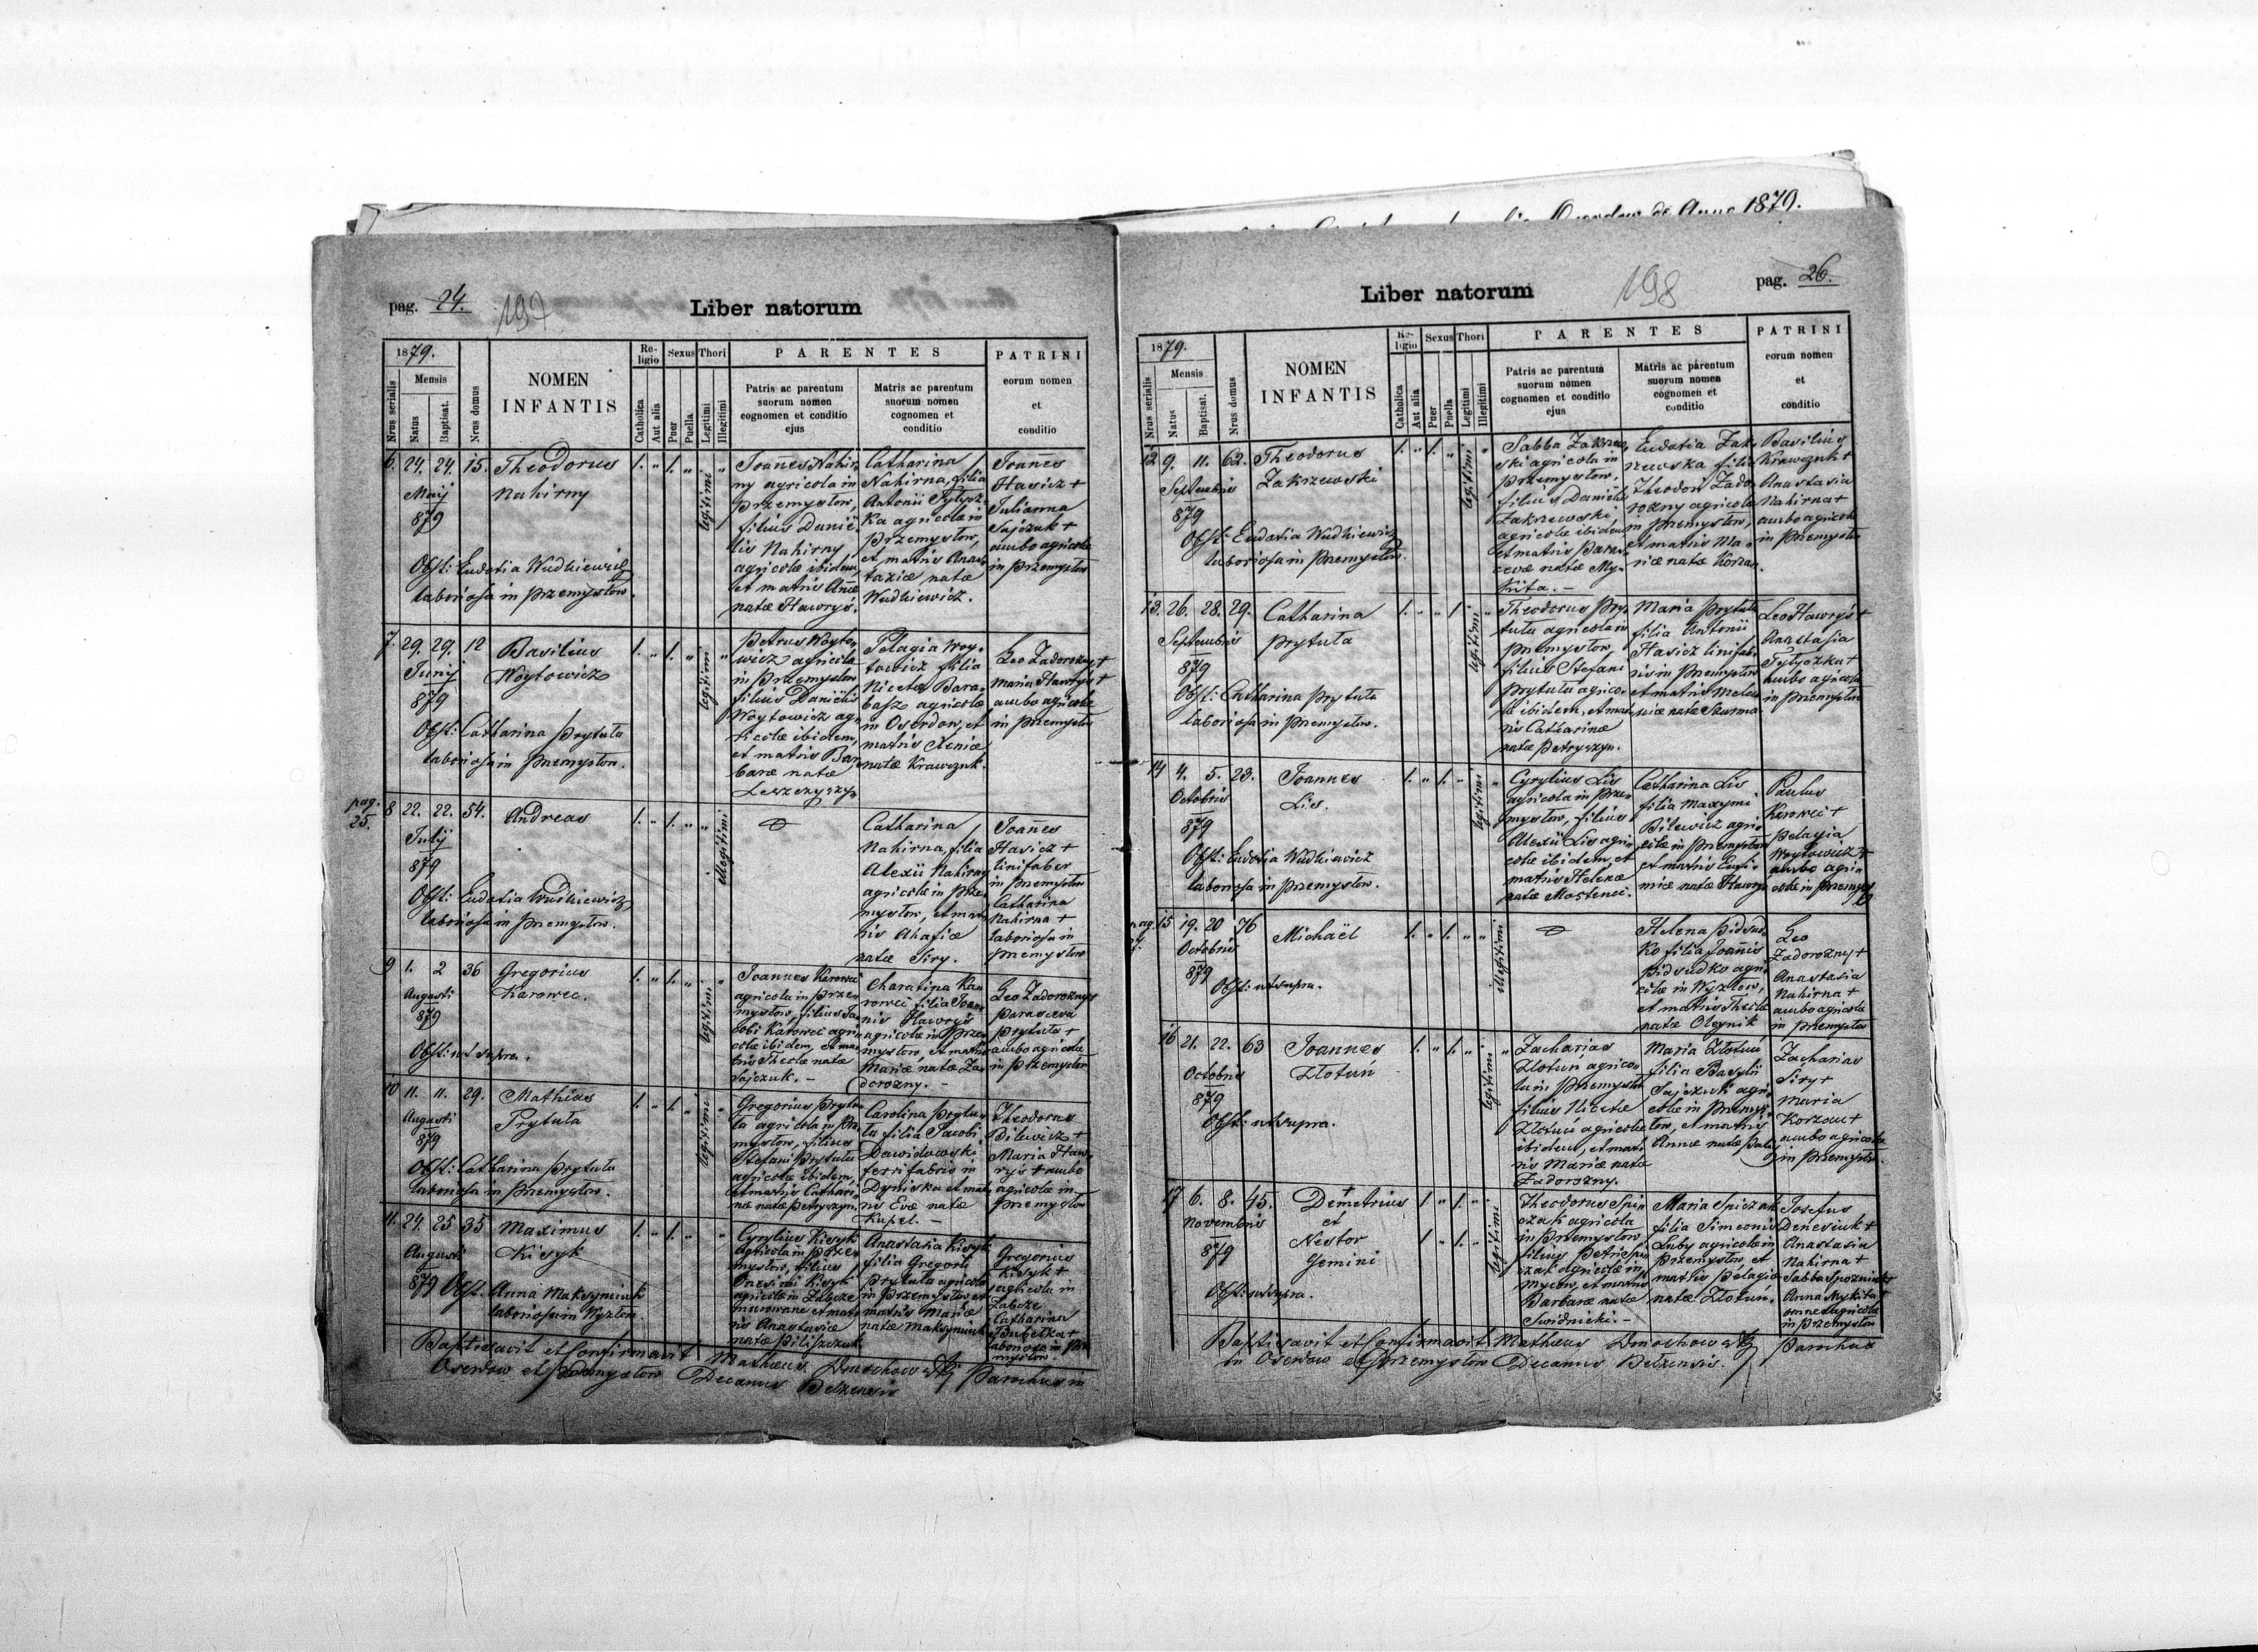 de Anno 1879.
pag. 24.
197
Liber natorum
1879.
Mensis
Nrus serialis
Natus
Baptisat.
Nrus domus
NOMEN
INFANTIS
Re-
ligio
Catholica
Aut alia
Sexus
Puer
Puella
Thori
Legitimi
Illegitimi
PARENTES
Patris ac parentum
suorum nomen
cognomen et conditio
ejus
Matris ac parentum
suorum nomen
cognomen et
conditio
PATRINI
eorum nomen
et
conditio
6. 24. 24. 15. Theodorus
Nahirny
Maij
879
Obst: Eudoxia Wudkiewicz
laboriosa in Przemysłow.
1. „ 1. „ legitimi „
Joannes Nahir-
ny agricola in
Przemysłow,
filius Danie-
lis Nahirny,
agricolæ ibidem
et matris Annæ
natæ Hawryś.
Catharina
Nahirna, filia
Antonii Tytycz-
ka agricola in
Przemysłow,
et matris Anas-
taziæ natæ
Wudkiewicz.
Joannes
Hasicz +
Julianna
Sajczuk +
ambo agricolæ
in Przemysłow
7. 29. 29. 12 Basilius
Woytowicz
Junij
879
Obst: Catharina Prytuła
laboriosa in Przemysłow.
1. „ 1. „ legitimi „
Petrus Woyto-
wicz agricola
in Przemysłow
filius Danielis
Woytowicz ag-
ricolæ ibidem,
et matris Bar-
baræ natæ
Leszczyszyn
Pelagia Woy-
towicz filia
Nicetæ Bara-
basz agricolæ
in Oserdow, et
matris Xeniæ
natæ Krawczuk.
Leo Zadorozny +
Maria Hawryś +
ambo agricolæ
in Przemysłow
pag.
25.
8 22. 22. 54. Andreas
Julij
879
Obst: Eudoxia Wudkiewicz
laboriosa in Przemysłow.
1. „ 1. „ „ illegitimi
Catharina
Nahirna, filia
Alexii Nahirny
agricolæ in Prze-
mysłow, et mat-
ris Ahafiæ
natæ Siry.
Joannes
Hasicz +
linifaber
in Przemysłow
Catharina
Nahirna +
laboriosa in
Przemysłow
9 1. 2 36 Gregorius
Karowec.
Augusti
879
Obst: ut supra.
1. „ 1. „ legitimi „
Joannes Karowec
agricola in Prze-
mysłow, filius Ja-
cobi Karowec agri-
colæ ibidem, et mat-
ris Theclæ natæ
Sajczuk. –
Charatina Ka-
rowec filia Joan-
nis Hawryś
agricolæ in Prze-
mysłow, et matris
Mariæ natæ Za-
dorozny. –
Leo Zadorozny +
Parascevia
Prytuła +
ambo agricolæ
in Przemysłow
10 11. 11. 29. Mathias
Prytuła
Augusti
879
Obst: Catharina Prytuła
laboriosa in Przemysłow.
1. „ 1. „ legitimi „
Gregorius Prytu-
ła agricola in Prze-
mysłow, filius
Stefani Prytuła
agricolæ ibidem,
et matris Cathari-
næ natæ Petryszyn.
Carolina Prytu-
ła filia Jacobi
Dawidowski
ferri fabris in
Dyniska et mat-
ris Evæ natæ
Kupel. –
Theodorus
Bilewicz +
Maria Haw-
ryś + ambo
agricolæ in
Przemysłow
11. 24. 25 35 Maximus
Kisyk
Augusti
879 Obst. Anna Maksymiuk
laboriosa in Wyzłow.
1. „ 1. „ „
Cyrylius Kisyk
agricola in Prze-
mysłow, filius
Onesimi Kisyk
agricolæ in Zabcze
murowane et mat-
ris Anastasiæ
natæ Piliszczuk
Anastasia Kisyk
filia Gregorii
Prytuła agricolæ
in Przemysłow et
matris Mariæ
natæ Maksymiuk
Gregorius
Kisyk +
agricola in
Zabcze
Catharina
Bubełka +
laboriosa in Prze-
mysłow.
Baptisavit et Confirmavit Matheus Dmochowski Parochus in
Oserdow et Przemysłow Decanus Belzensis
pag. 26.
198
Liber natorum
1879.
Mensis
Nrus serialis
Natus
Baptisat.
Nrus domus
NOMEN
INFANTIS
Re-
ligio
Catholica
Aut alia
Sexus
Puer
Puella
Thori
Legitimi
Illegitimi
PARENTES
Patris ac parentum
suorum nomen
cognomen et conditio
ejus
Matris ac parentum
suorum nomen
cognomen et
conditio
PATRINI
eorum nomen
et
conditio
12. 9. 11. 62. Theodorus
Zakrzewski
Septembris
879
Obst: Eudoxia Wudkiewicz
laboriosa in Przemysłow.
1. „ 1. „ legitimi „
Sabba Zakrzew-
ski agricola in
Przemysłow,
filius Danielis
Zakrzewski,
agricolæ ibidem
et matris Paras-
cevæ natæ My-
kita. –
Eudoxia Zak-
rzewska filia
Theodori Zado-
rozny agricolæ
in Przemysłow,
et matris Ma-
riæ natæ Korzan.
Basilius
Krawczuk +
Anastasia
Nahirna +
ambo agricolæ
in Przemysłow
13. 26. 28. 29. Catharina
Prytuła
Septembris
879
Obst: Catharina Prytuła
laboriosa in Przemysłow.
1. „ „ 1. legitimi „
Theodorus Pry-
tuła agricola in
Przemysłow,
filius Stefani
Prytuła agrico-
læ ibidem, et mat-
ris Catharinæ
natæ Petryszyn.
Maria Prytuła
filia Antonii
Hasicz linifab-
ris in Przemysłow
et matris Mela-
niæ natæ Szurma.
Leo Hawryś +
Anastasia
Tytyczka +
ambo agricolæ
in Przemysłow
14 4. 5. 23. Joannes
Lis.
Octobris
879
Obst: Eudoxia Wudkiewicz
laboriosa in Przemysłow.
1. „ 1. „ legitimi „
Cyrylius Lis
agricola in Prze-
mysłow, filius
Alexii Lis agri-
colæ ibidem, et
matris Helenæ
natæ Mostenec.
Catharina Lis
filia Maxymi
Bilewicz agri-
colæ in Przemysłow
et matris Eufi-
miæ natæ Hawryś
Paulus
Karowec +
Pelagia
Woytowicz +
ambo agri-
colæ in Przemysłow
15 19. 20 76 Michaël
Octobris
879
Obst: ut supra.
1. „ 1. „ „ illegitimi
Helena Pidsud-
ko filia Joannis
Pidsudko agri-
colæ in Wyzłow,
et matris Theclæ
natæ Oleynik
Leo
Zadorozny +
Anastasia
Nahirna +
ambo agricolæ
in Przemysłow
16 21. 22. 63 Joannes
Złotuń
Octobris
879
Obst: ut supra.
1. „ 1. „ legitimi „
Zacharias
Złotuń agrico-
la in Przemysłow
filius Nicetæ
Złotuń agricolæ
ibidem, et mat-
ris Mariæ natæ
Zadorozny.
Maria Złotuń
filia Basylii
Sajczuk agri-
colæ in Przemys-
łow, et matris
Annæ natæ
Zacharias
Siry +
Maria
Korzan +
ambo agricolæ
in Przemysłow.
17 6. 8. 45. Demetrius
et
Nestor
Gemini
Novembris
879
Obst: ut supra.
1. „ 1. „ legitimi
1. „ 1. „
Theodorus Spi-
czak agricola
in Przemysłow
filius Petri Spi-
czak agricolæ in
Mycow, et matris
Barbaræ natæ
Swidnicki. –
Maria Spiczak
filia Simeonis
Luby agricolæ in
Przemysłow, et
matris Pelagiæ
natæ Złotuń.
Josefus
Denesiuk +
Anastasia
Nahirna +
Sabba
Anna Mykita +
omnes agricolæ
in Przemysłow
Baptisavit et Confirmavit Matheus Dmochowski Parochus
in Oserdow et Przemysłow Decanus Belzensis.